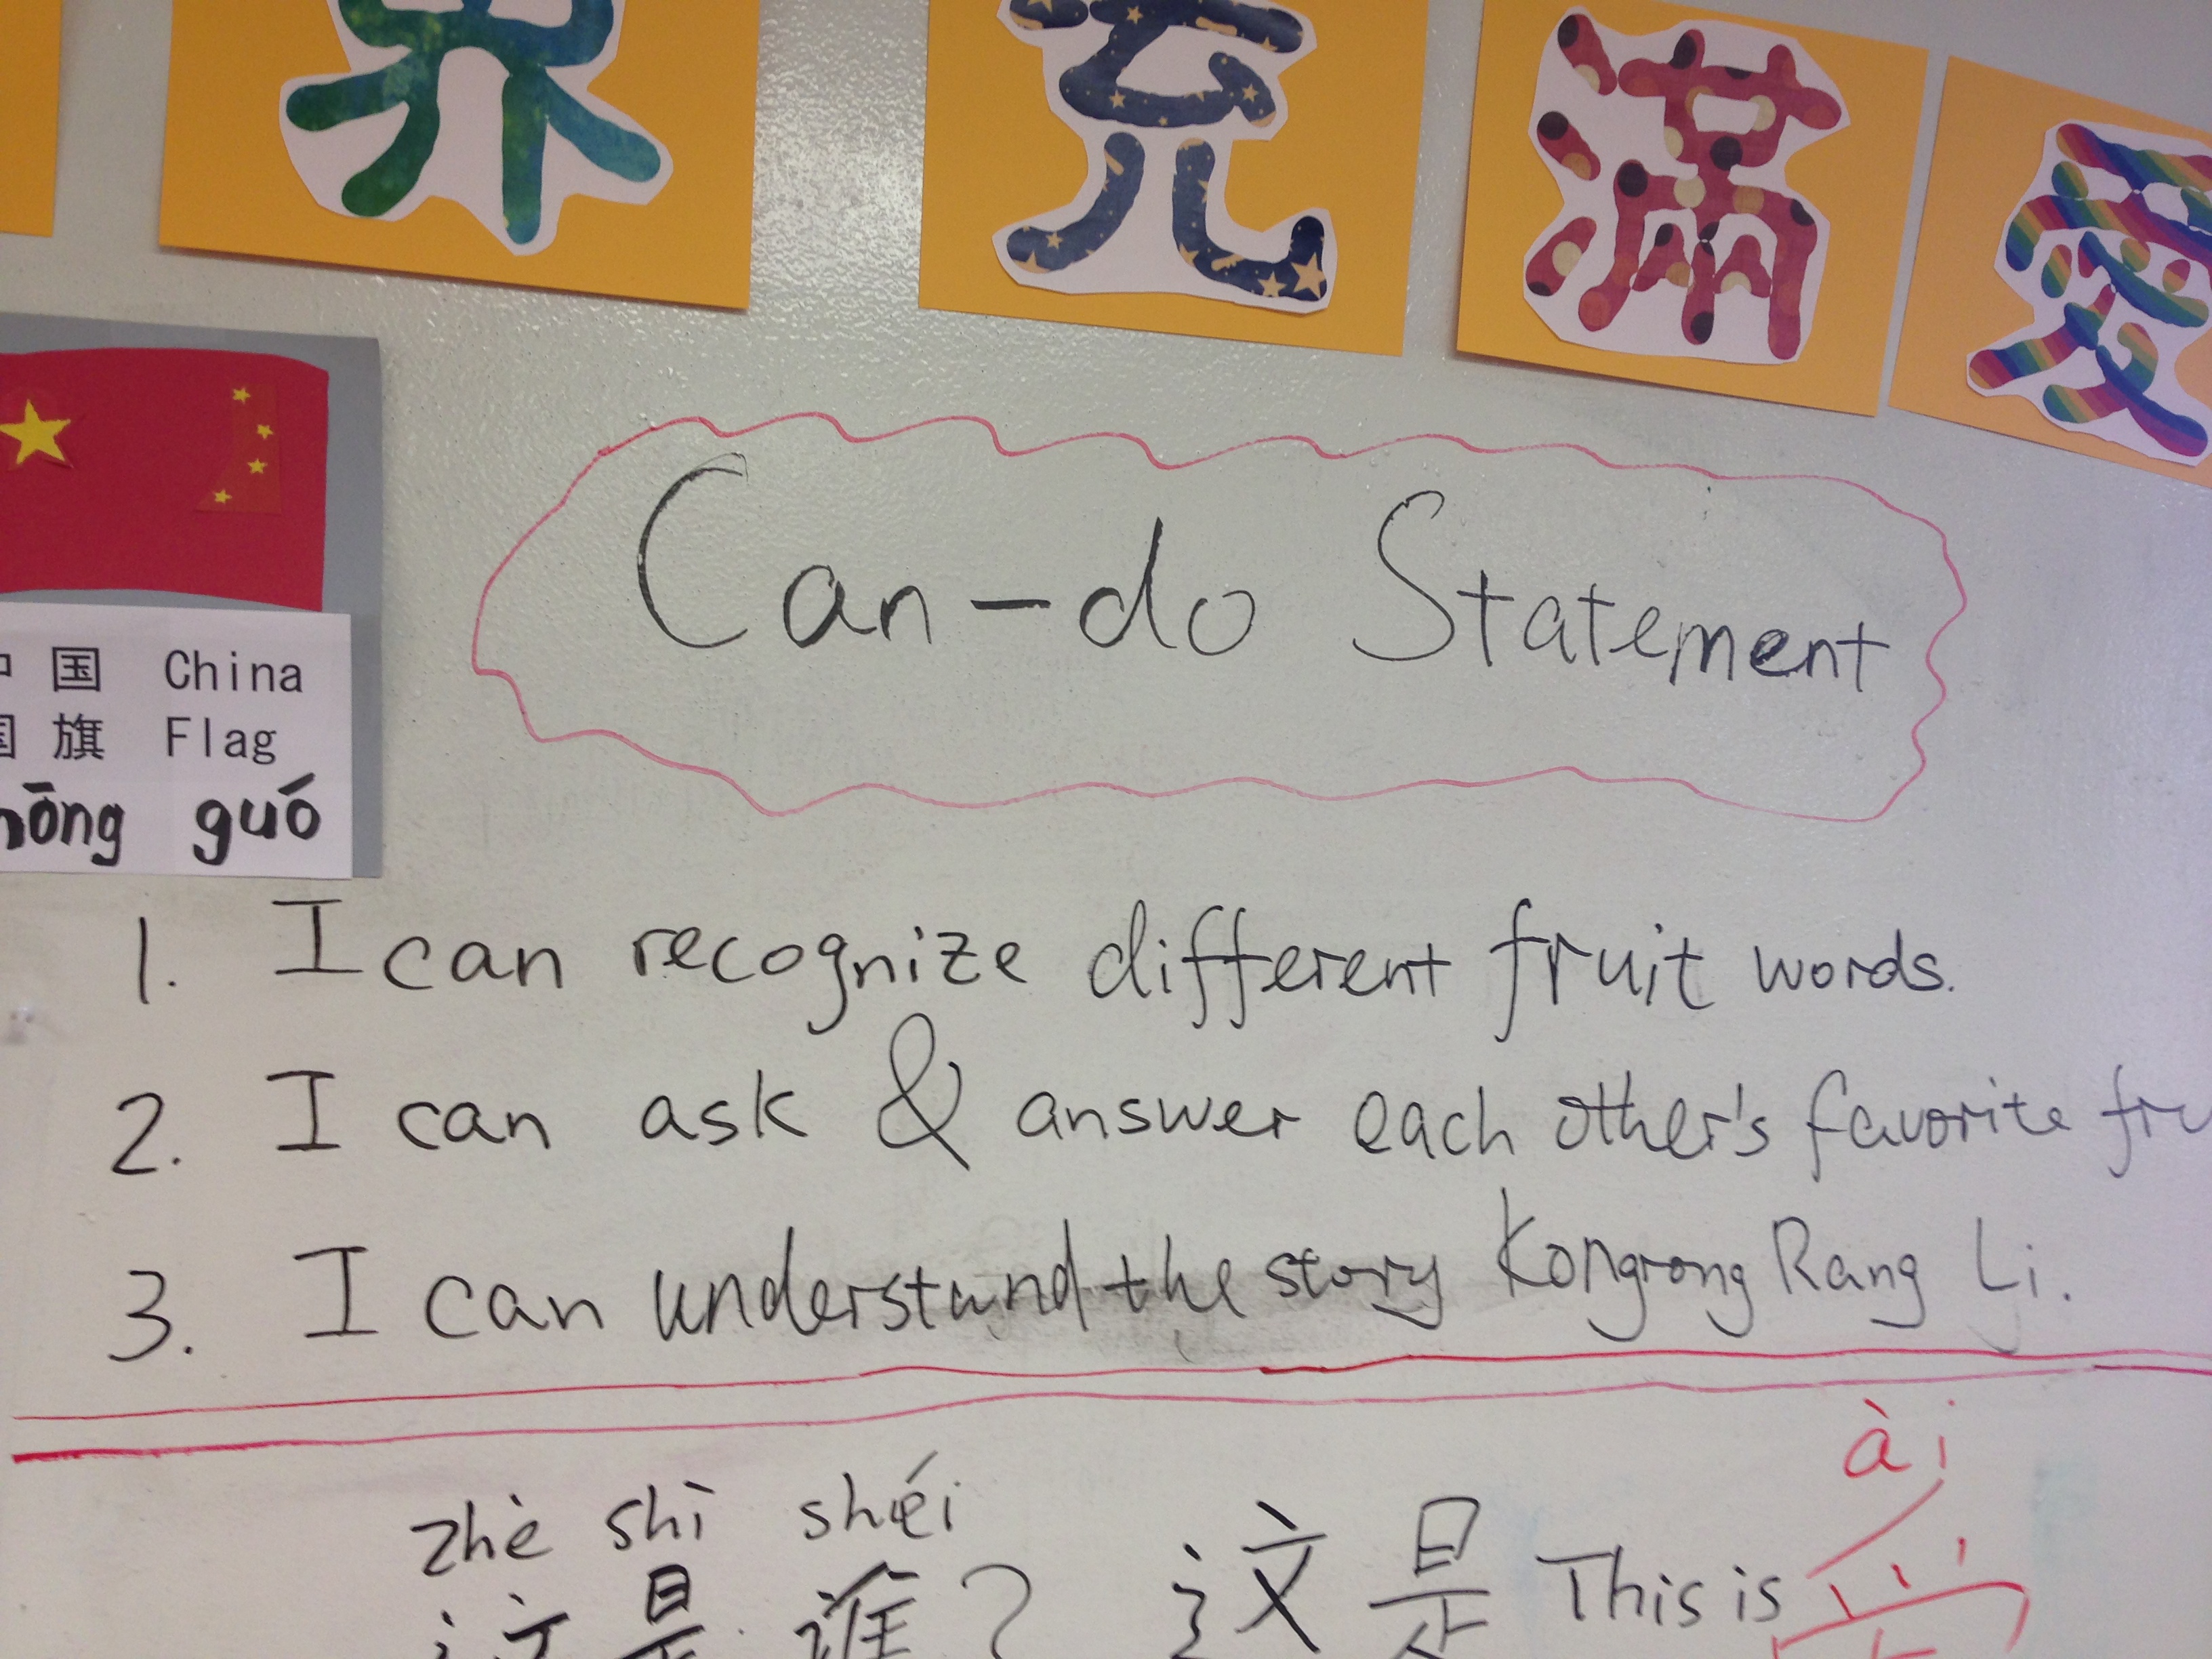 界 充 满 爱
Can-do Statement
国 China
国 旗 Flag
hōng guó
1. I can recognize different fruit words.
2. I can ask & answer each other's favorite fru
3. I can understand the story Kongrong Rang Li.
ài
zhè shì shéi
这 是 谁 ? 这 是 This is